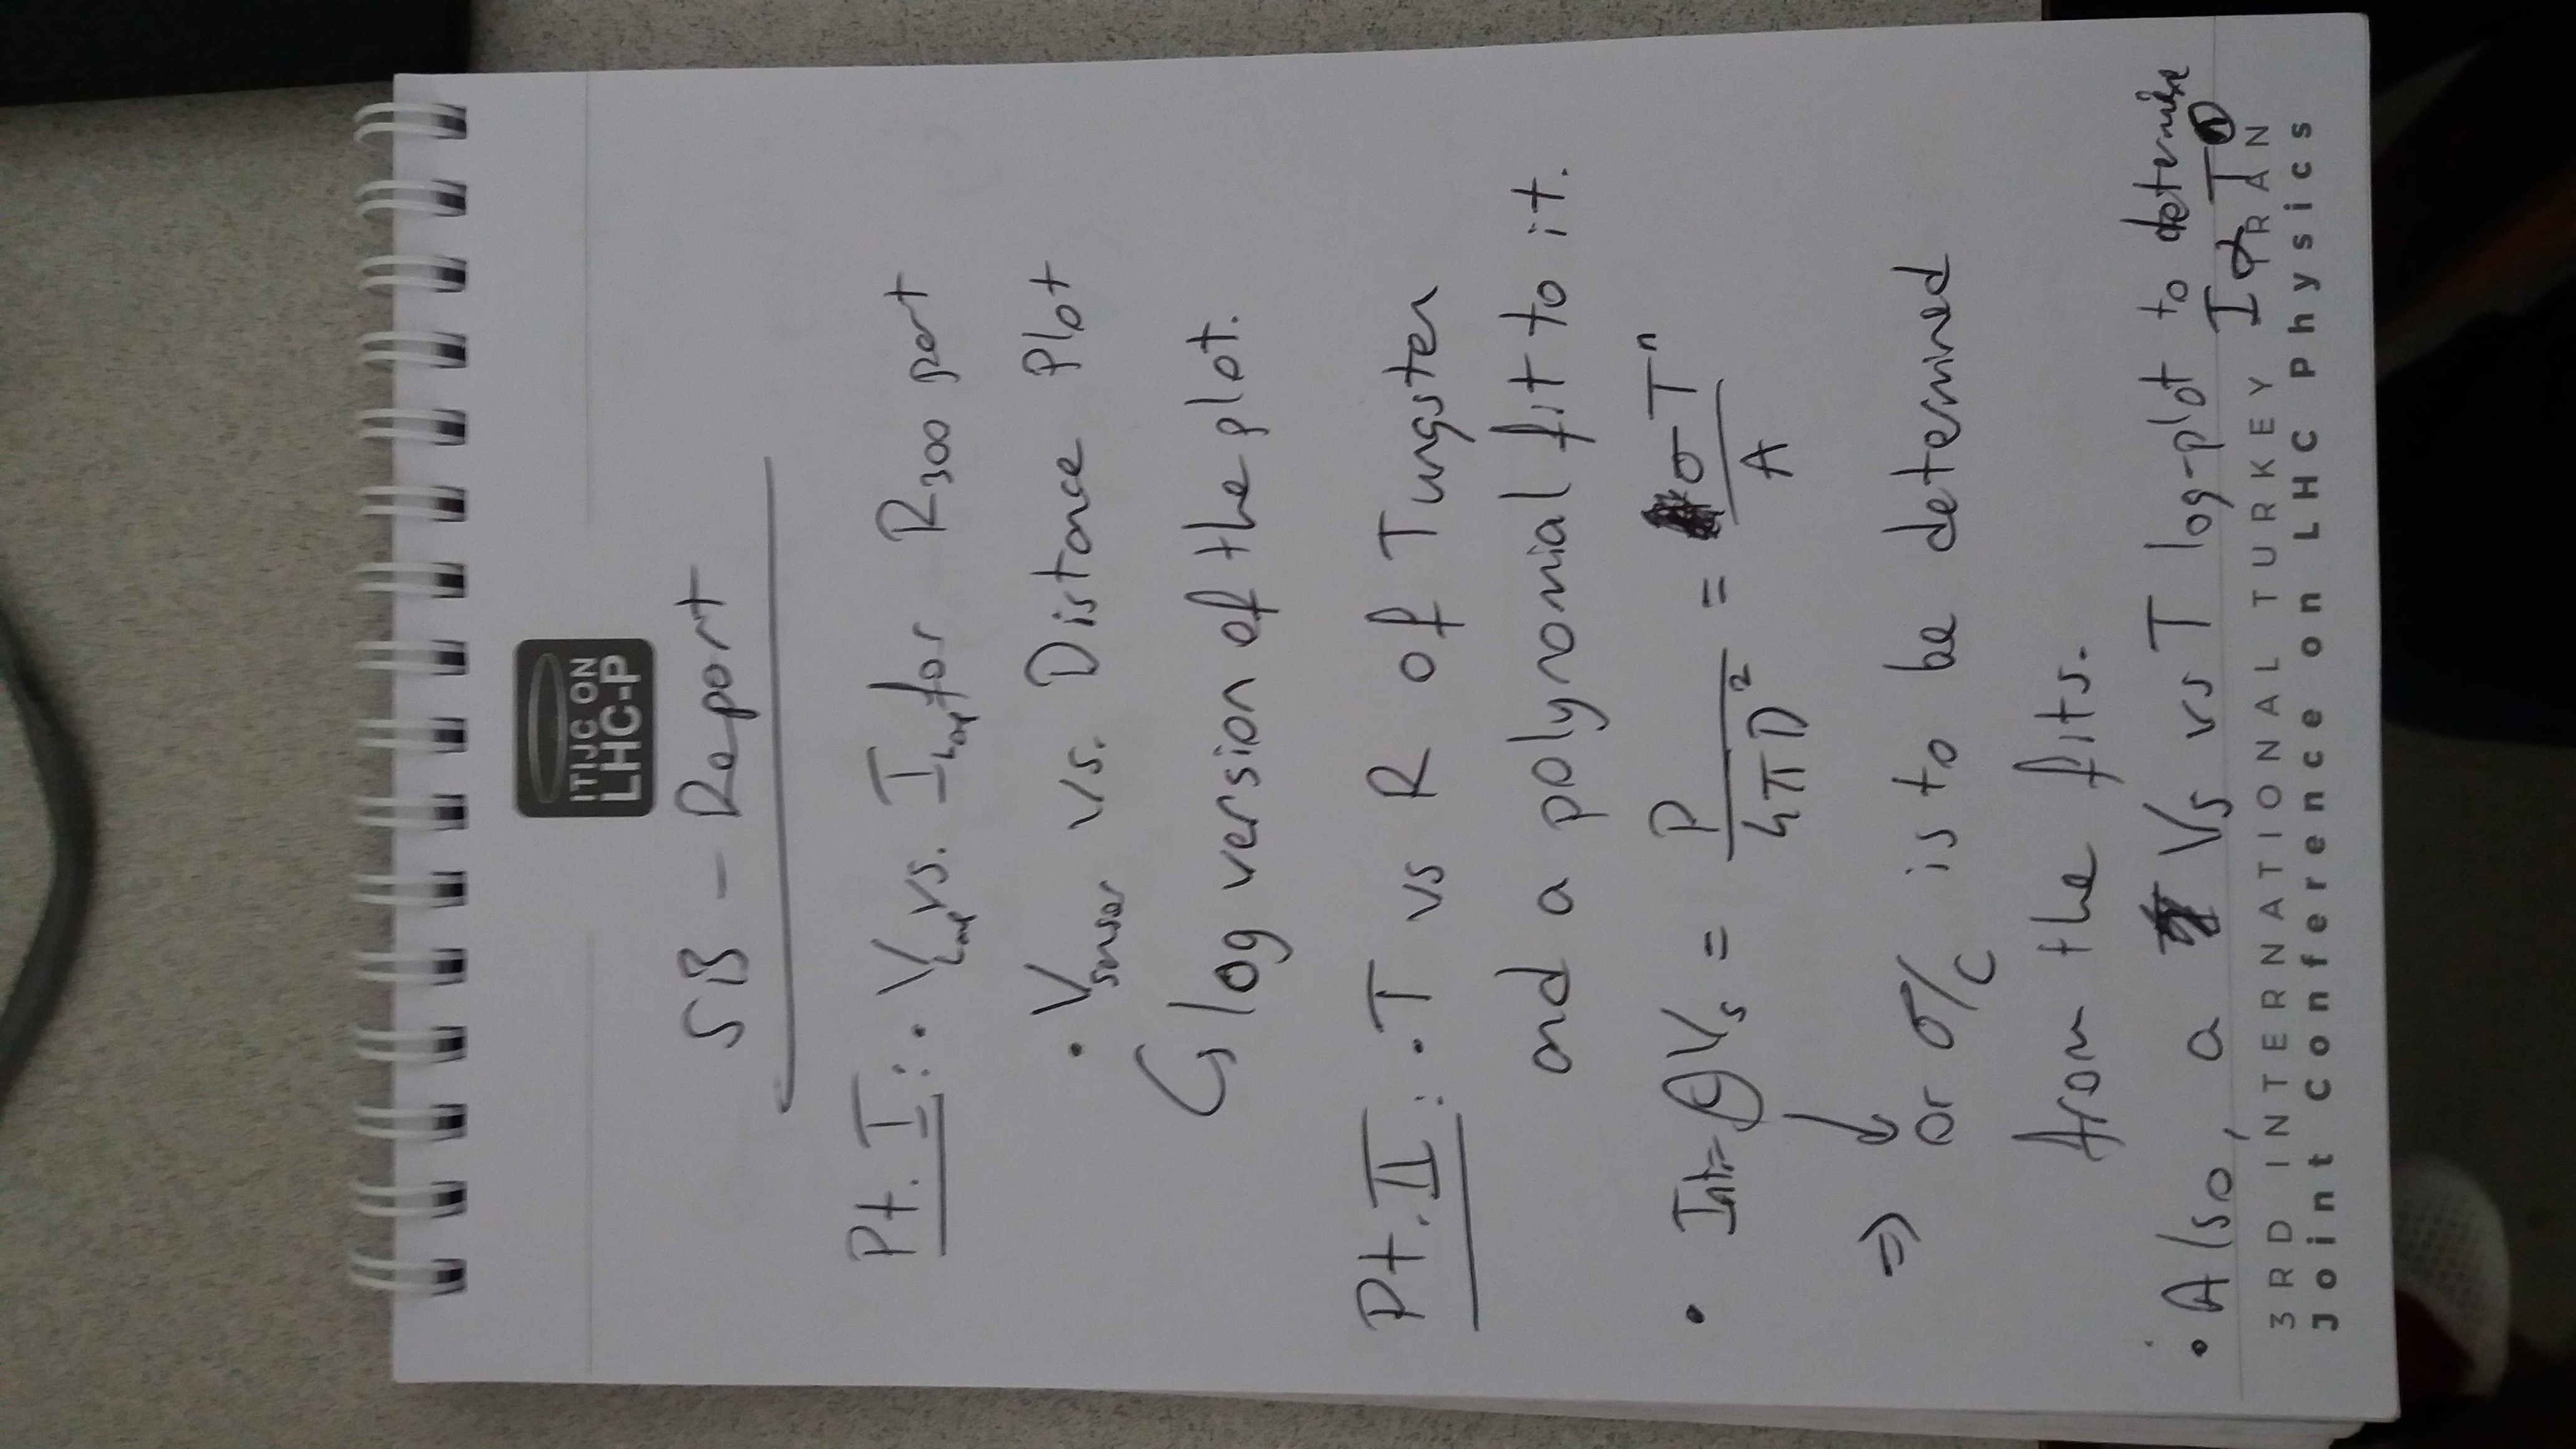 ITIJC ON
LHC-P
SB - Report
Pt. I: • V_Lamp vs. I_Lamp for R₃₀₀ part
• V_sensor vs. Distance Plot
↳ log version of the plot.
Pt. II: • T vs R of Tungsten
and a polynomial fit to it.
• Int = C V_s = P / 4πD² = σTⁿ / A
↓
⇒ or σ/C is to be determined
from the fits.
• Also, a V_s vs T log-plot to determine
I α Tⁿ
3RD INTERNATIONAL TURKEY IRAN
Joint Conference on LHC Physics